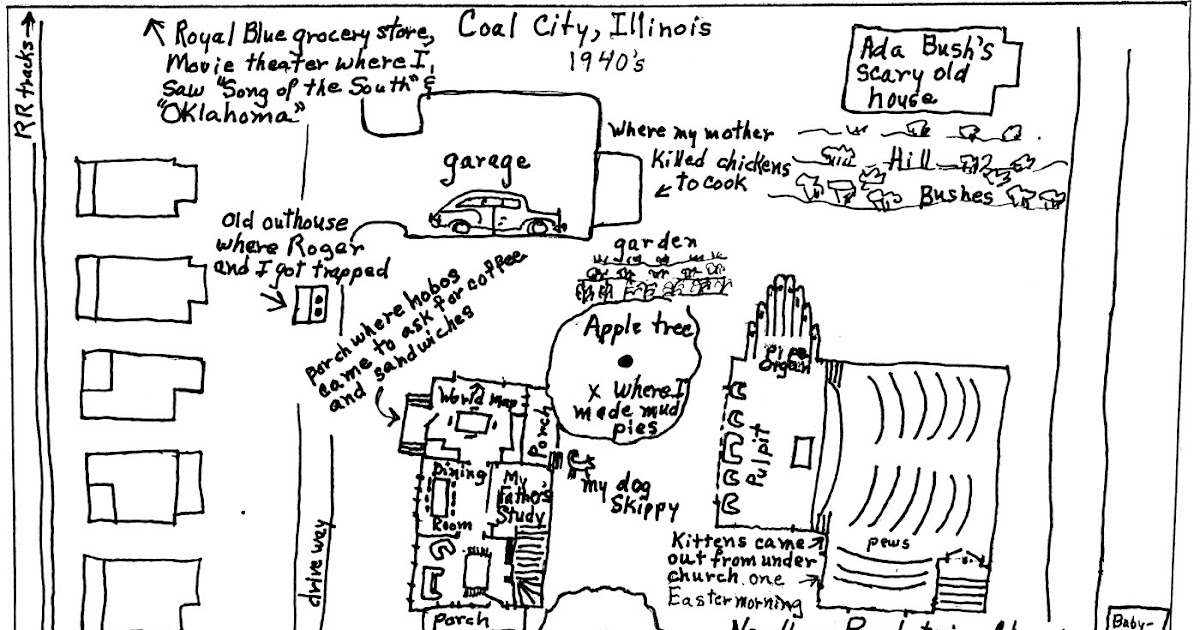 Coal City, Illinois
1940's
RR tracks
Royal Blue grocery store,
Movie theater where I
saw "Song of the South" &
"Oklahoma"
Ada Bush's
scary old
house
where my mother
killed chickens
to cook
Hill
Bushes
garage
old outhouse
where Roger
and I got trapped
garden
porch where hobos
came to ask for coffee
and sandwiches
Apple tree
x where I
made mud
pies
pipe
organ
World map
Porch
Pulpit
Dining
Room
My
Father's
Study
my dog
Skippy
Kittens came
out from under
church one
Easter morning
pews
drive way
Porch
Baby-